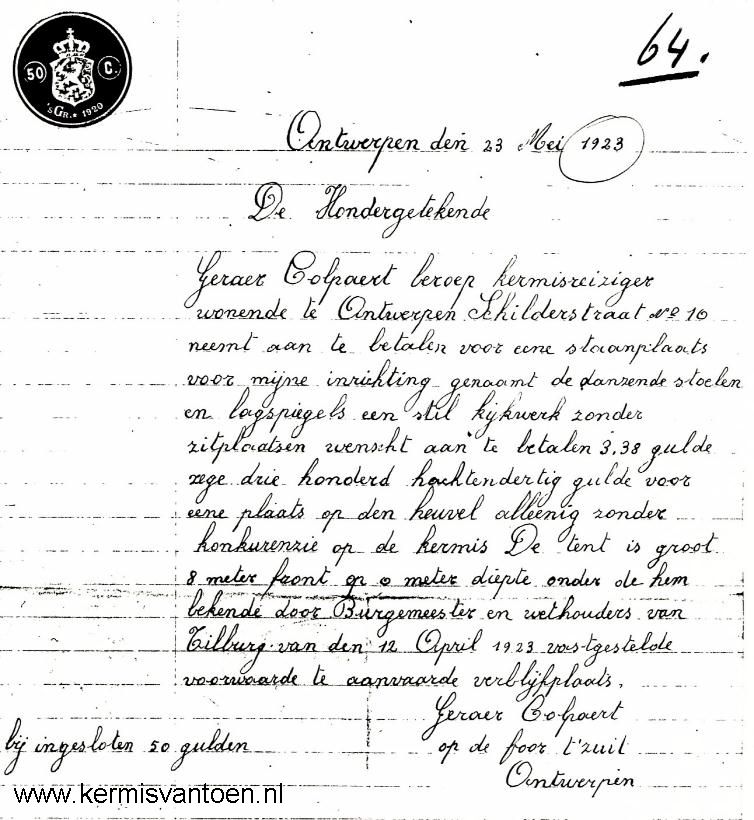 50 C.
'sGR.* 1920
64.
Antwerpen den 23 Mei 1923
De Hondergetekende
Geraer Colpaert beroep kermisreiziger
wonende te Antwerpen Schilderstraat No 10
neemt aan te betalen voor eene staanplaats
voor mijne inrichting genaamt de danzende stoelen
en lagspiegels een stil kijkwerk zonder
zitplaatsen wenscht aan te betalen 3,38 gulde
zege drie honderd hachtendertig gulde voor
eene plaats op den heuvel alleenig zonder
konkurenzie op de kermis De tent is groot
8 meter front op meter diepte onder de hem
bekende door Burgemeester en wethouders van
Tilburg van den 12 April 1923 vastgestelde
voorwaarde te aanvaarde verblijfplaats.
Geraer Colpaert
bij ingesloten 50 gulden
op de foor t'zuit
Antwerpen
www.kermisvantoen.nl